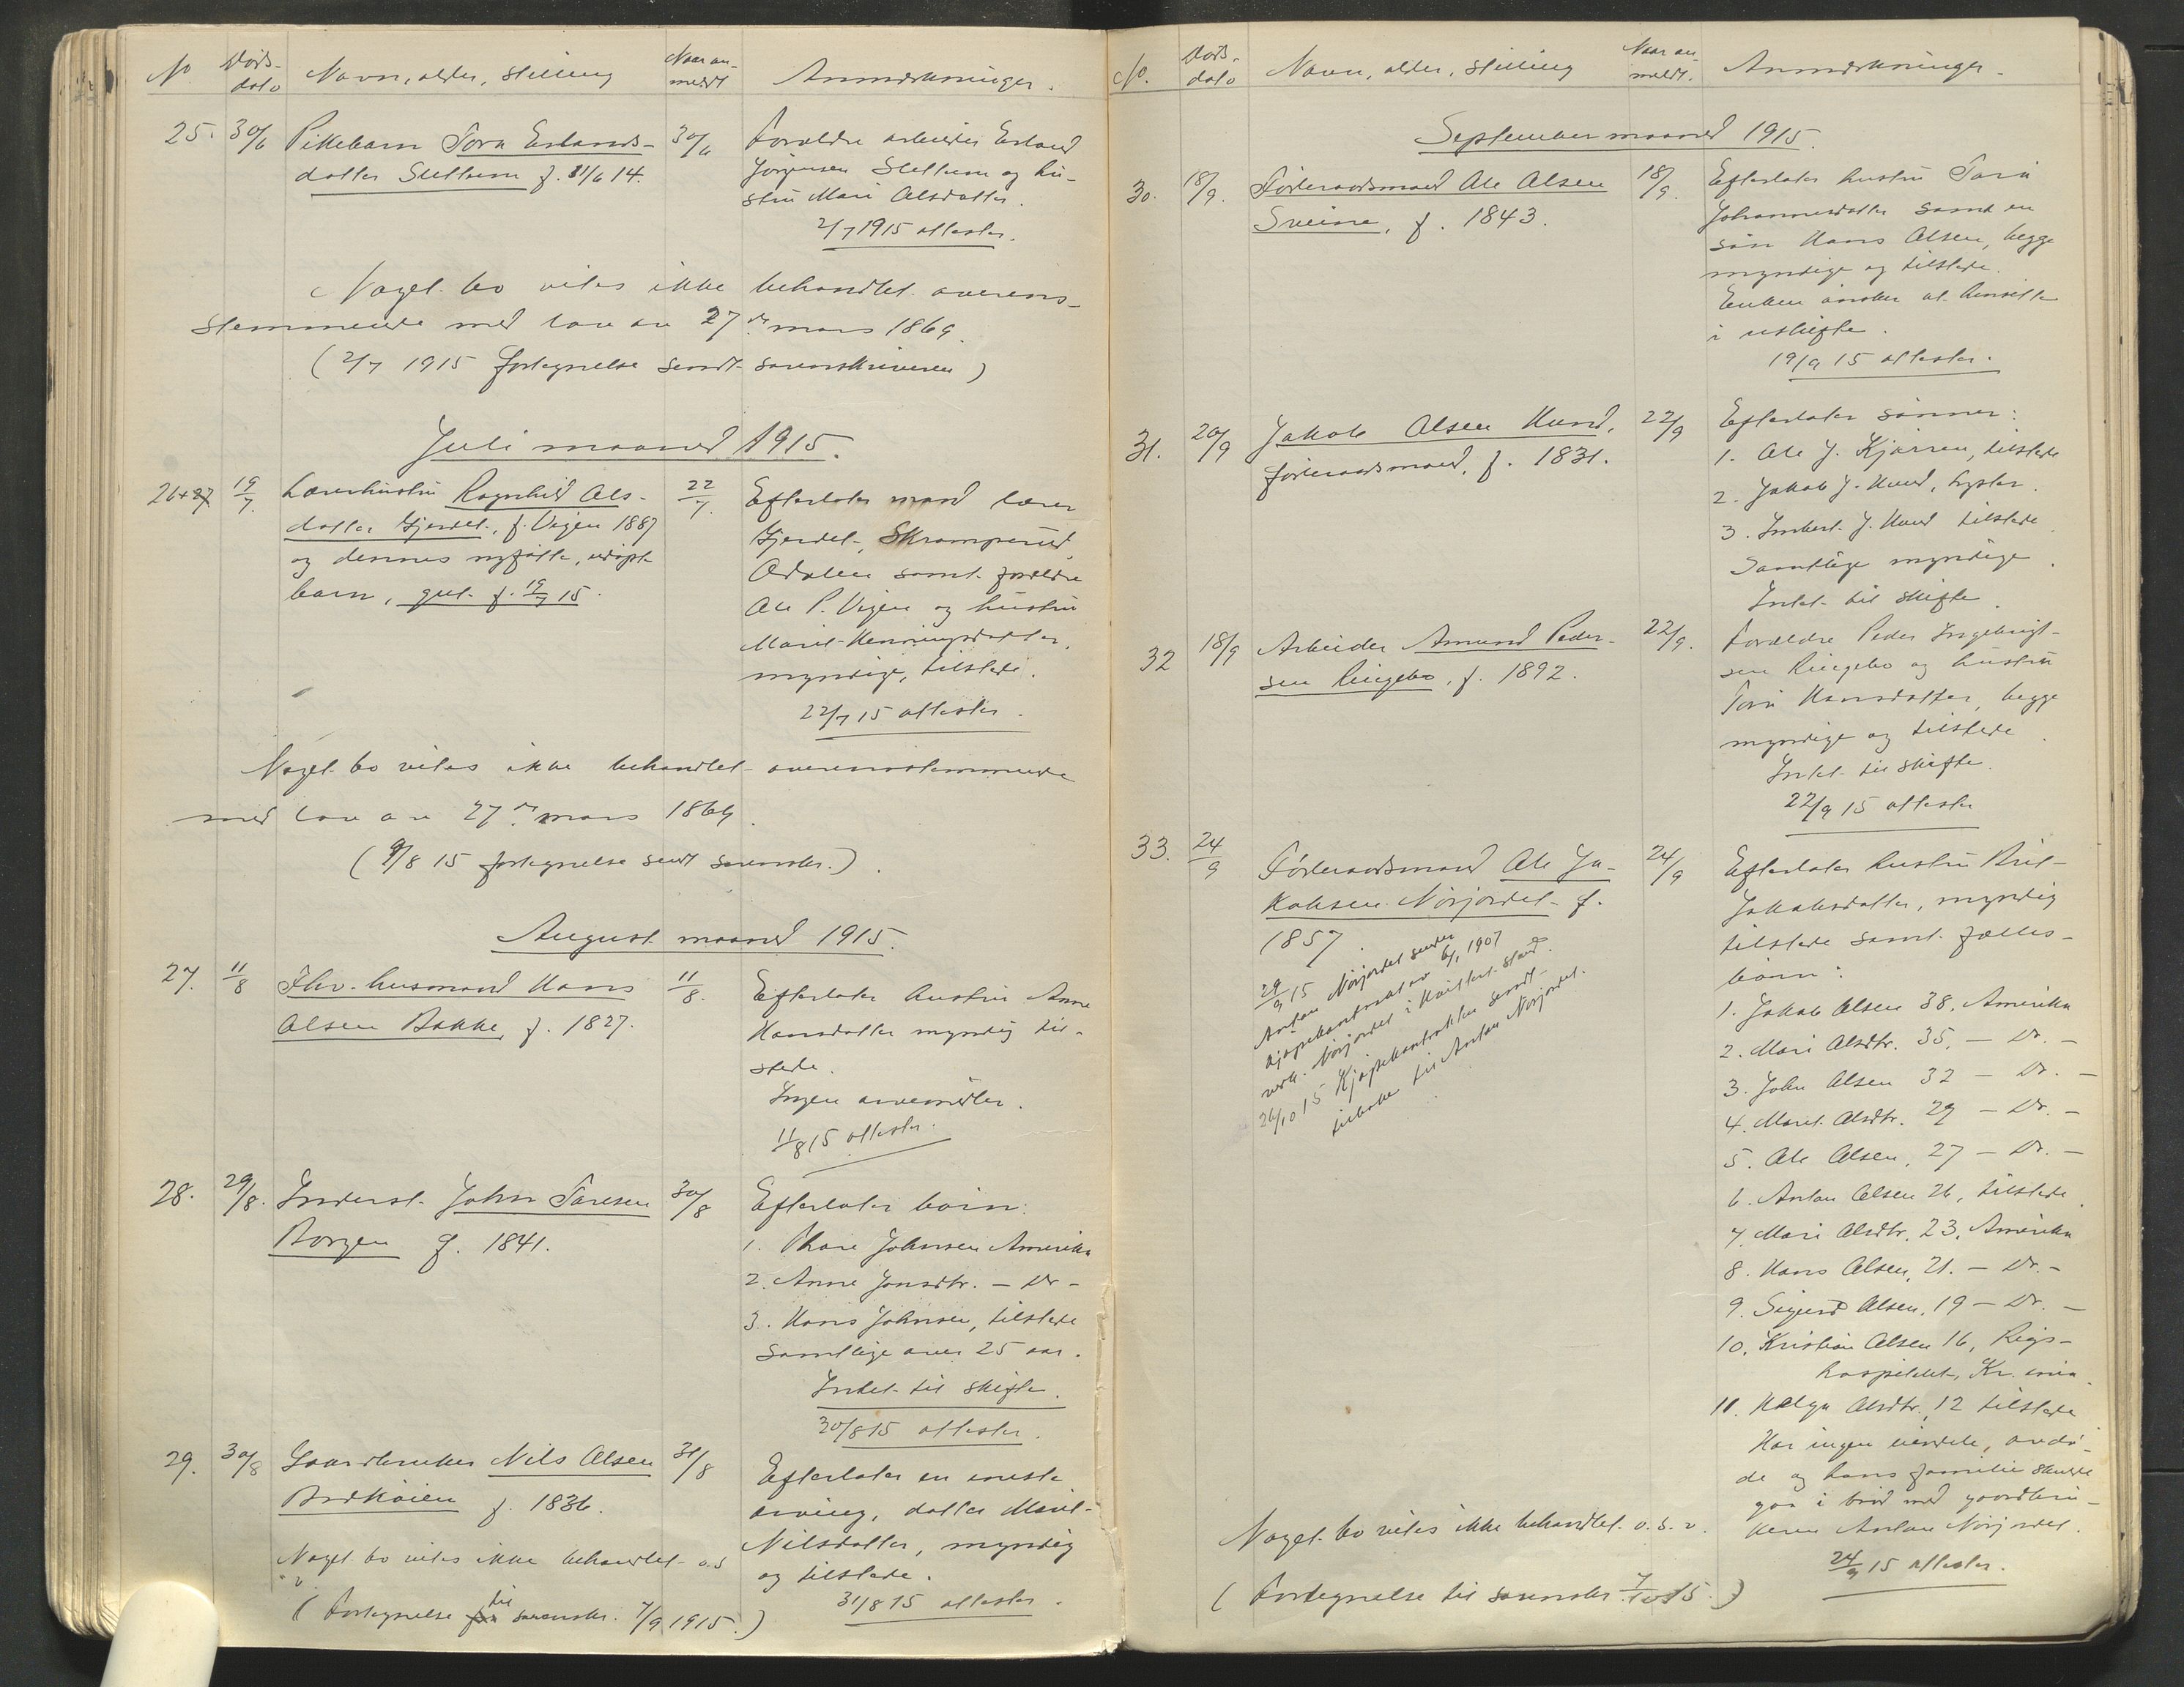 No Døds- Navn, alder, stilling Naar an- Anmerkninger.
dato meldt
25. 30/6 Pikebarn Tora Erlands- 30/6 Forældre arbeider Erland
datter Slettum f. 11/6 14. Jørgensen Slettum og hu-
stru Mari Olsdatter.
2/7 1915 attester.
Noget bo vites ikke behandlet overens-
stemmende med lov av 27de mars 1869.
(2/7 1915 fortegnelse sendt sorenskriveren)
Juli maaned 1915.
26+27 19/7. Lærerhustru Ragnhild Ols- 22/7. Efterlater mand lærer
datter Gjerdet, f. Vigen 1887 Gjerdet, Skramperud,
og dennes nyfødte, udøpte Ådalen samt forældre
barn, gut f. 19/7 15. Ole P. Vigen og hustru
Marit Henningsdatter,
myndige, tilstede.
22/7 15 attester.
Noget bo vites ikke behandlet overensstemmende
med lov av 27de mars 1869.
(9/8 15 fortegnelse sendt sorenskr.).
August maaned 1915.
27. 11/8 Fhv. husmand Hans 11/8. Efterlater hustru Anne
Olsen Bakke, f. 1827. Hansdatter myndig til-
stede.
Ingen arvemidler.
11/8 15 attester.
28. 29/8. Inderst John Toresen 30/8 Efterlater børn:
Borgen f. 1841. 1. Thore Johnsen Amerika
2. Anne Jonsdtr. — Do —
3. Hans Johnsen, tilstede
Samtlige over 25 aar.
Intet til skifte.
30/8 15 attester.
29. 30/8 Gaardbruker Nils Olsen 31/8 Efterlater en eneste
f. 1836. arving, datter Marit
Noget bo vites ikke behandlet o.s Nilsdatter, myndig
v. og tilstede.
(Fortegnelse til sorenskr. 7/9 1915.) 31/8 15 attester.
No. Døds- Navn, alder, stilling Naar an- Anmerkninger.
dato meldt.
September maaned 1915.
30. 18/9. Føderaadsmand Ole Olsen 18/9. Efterlater hustru Tora
Sveine, f. 1843. Johannesdatter samt en
søn Hans Olsen, begge
myndige og tilstede.
Enken ønsker at hensitte
i uskifte.
19/9 15 attester.
31. 20/9 Jakob Olsen Hund, 22/9 Efterlater sønner:
føderaadsmand, f. 1831. 1. Ole J. Kjørren, tilstede
2. Jakob J. Hund,
3. J. Hund tilstede
Samtlige myndige.
Intet til skifte.
32 18/9 Arbeider Amund Peder- 22/9. Forældre Peder Ingebrigt-
sen Ringebo, f. 1892. sen Ringebo og hustru
Tora Hansdatter, begge
myndige og tilstede.
Intet til skifte.
22/9 15 attester
33. 24/9 Føderaadsmand Ole Ja- 24/9 Efterlater hustru Brit
kobsen Nørjordet f. Jakobsdatter, myndig
1857. tilstede samt fælles-
børn:
29/9 15 Anton Nørjordet sender
kjøpekontrakt av 6/1 1907
vedk. Nørjordet i
26/10 15 Kjøpekontrakten sendt
tilbake til Anton Nørjordet.
1. Jakob Olsen 38. Amerika
2. Mari Olsdtr. 35. — Do. —
3. John Olsen 32 — Do. —
4. Marit Olsdtr. 29 — Do. —
5. Ole Olsen, 27 — Do. —
6. Anton Olsen 26, tilstede.
7. Mari Olsdtr. 23. Amerika
8. Hans Olsen, 21. — Do. —
9. Sigurd Olsen, 19 — Do. —
10. Kristian Olsen 16, Rigs-
hospitalet, Kr.ania.
11. Helga Olsdtr. 12 tilstede
Har ingen eiendele, avdø-
de og hans familie skulde
gaa i brød med gaardbru-
Noget bo vites ikke behandlet o.s.v. keren Anton Nørjordet.
24/9 15 attester.
(Fortegnelse til sorenskr. 7/10 15.)